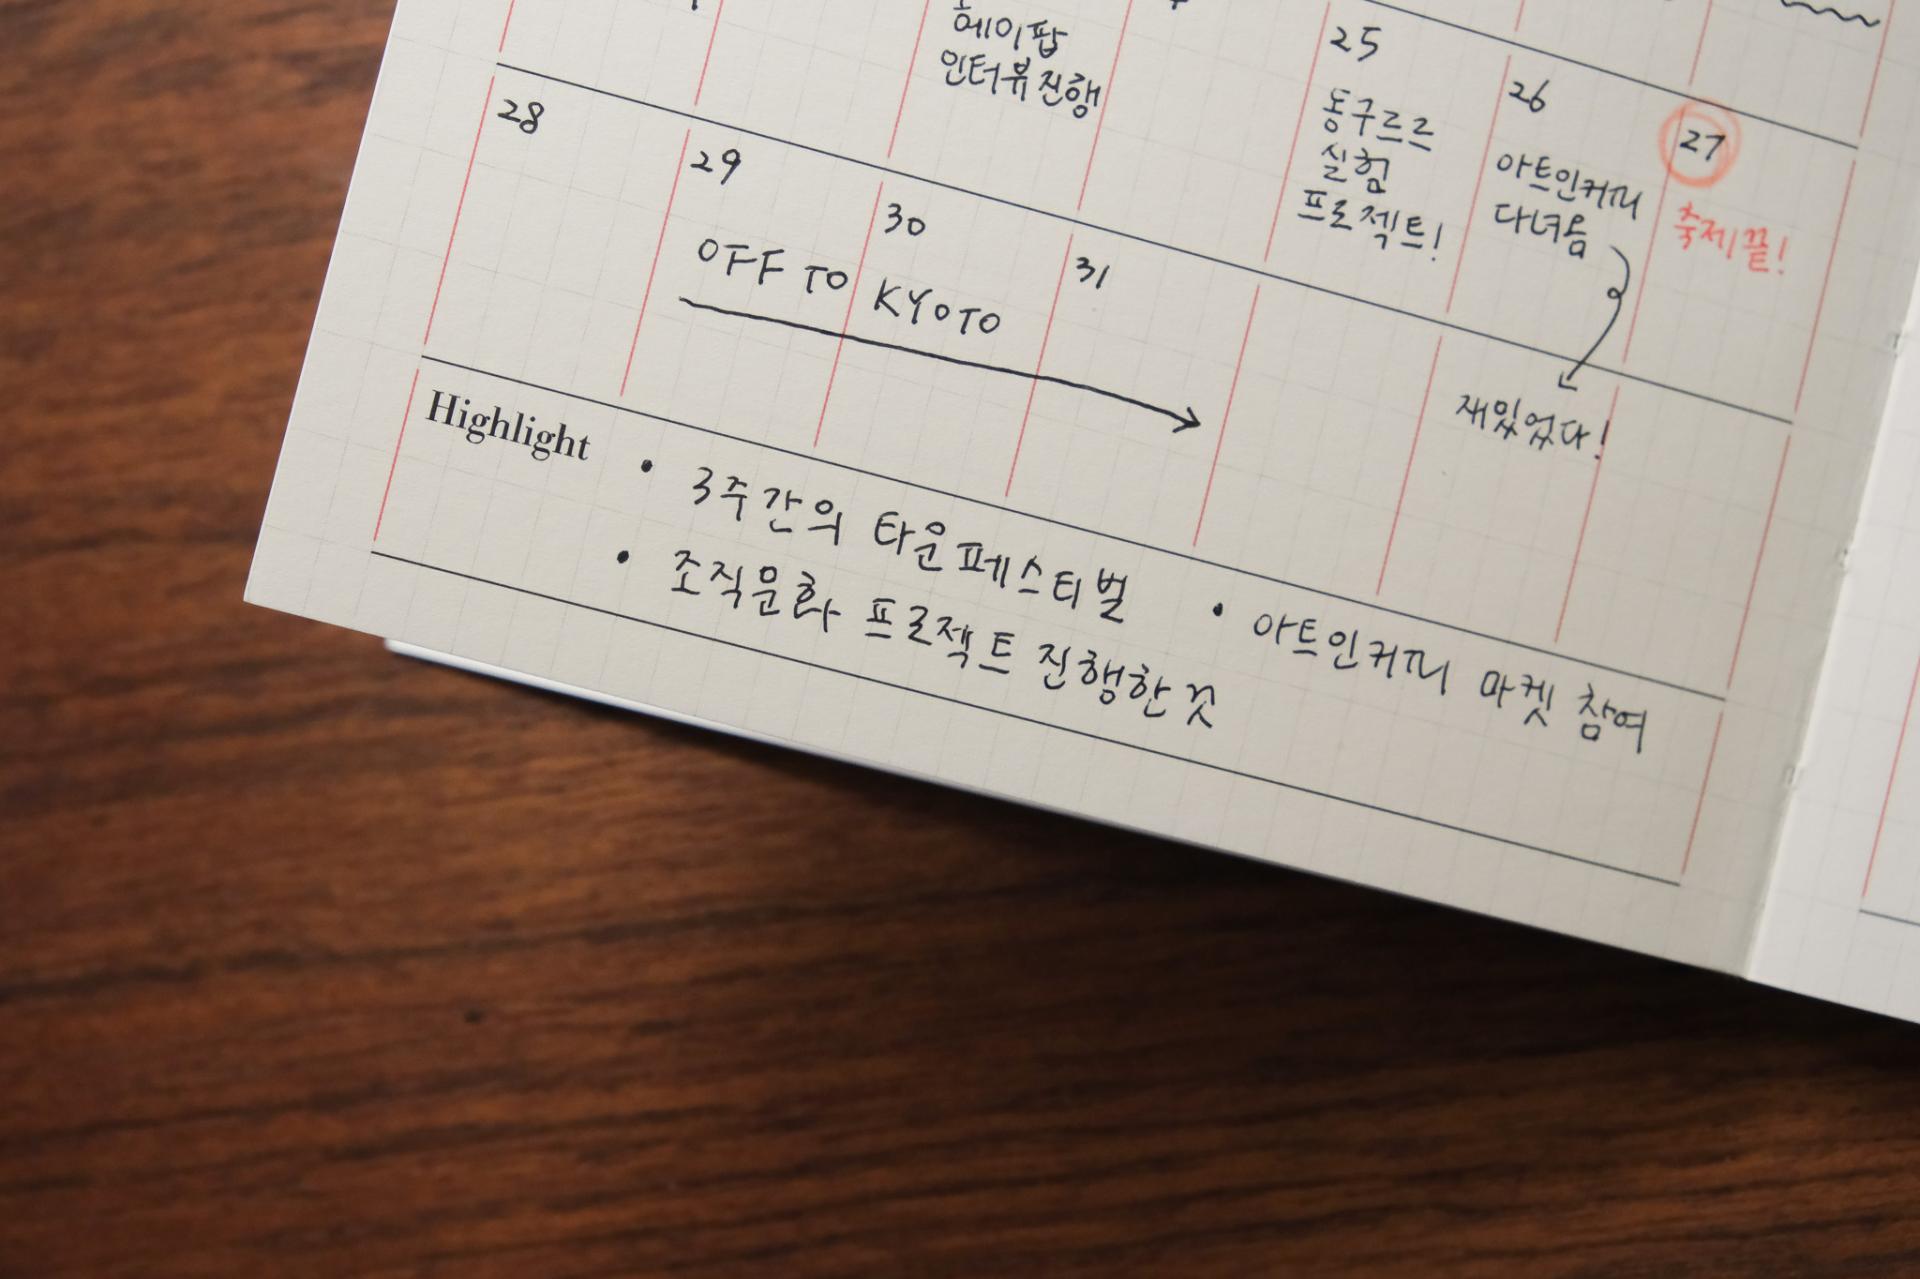 헤이팝
인터뷰 진행
25
동구르르
실험
프로젝트!
26
아트인커피
다녀옴
재밌었다!
27
축제 끝!
28
29
30
31
OFF TO KYOTO
Highlight
• 3주간의 타운페스티벌
• 아트인커피 마켓 참여
• 조직문화 프로젝트 진행한 것